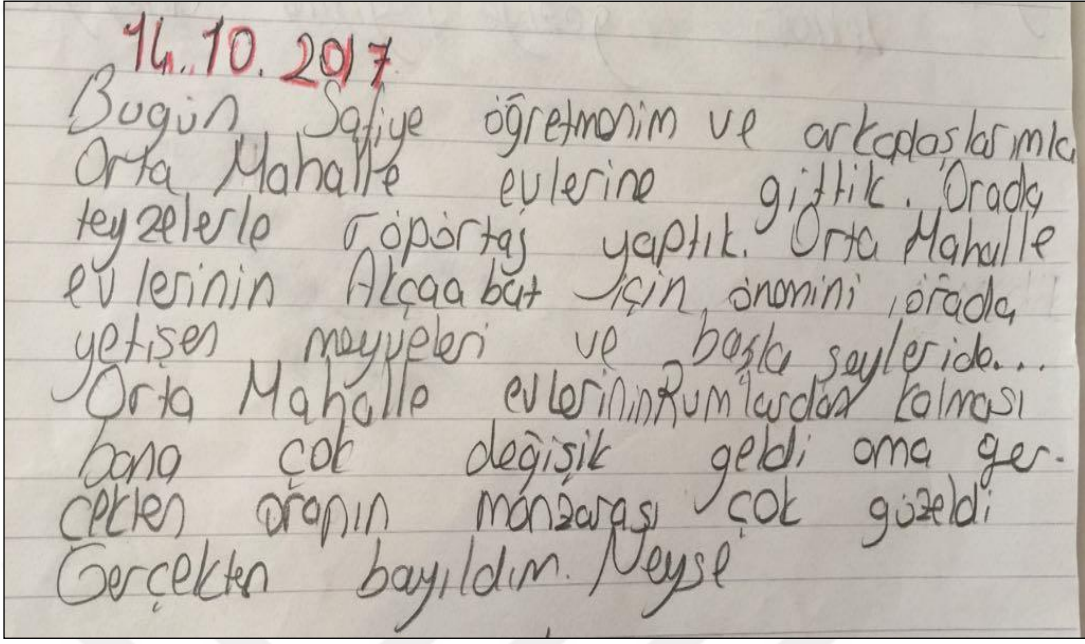 14.10.2017
Bugün Safiye öğretmenim ve arkadaşlarımla
Orta Mahalle evlerine gittik. Orada
teyzelerle röportaj yaptık. Orta Mahalle
evlerinin Akçaabat için önemini, orada
yetişen meyveleri ve başka şeyleride...
Orta Mahalle evlerinin Rumlardan kalması
bana çok değişik geldi ama ger-
çekten oranın manzarası çok güzeldi
Gerçekten bayıldım. Neyse